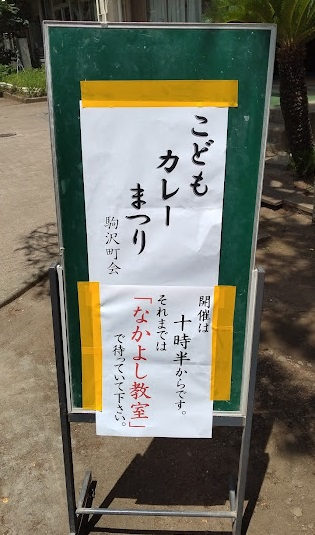 こども
カレー
まつり
駒沢町会
開催は
十時半からです。
それまでは
「なかよし教室」
で待っていて下さい。